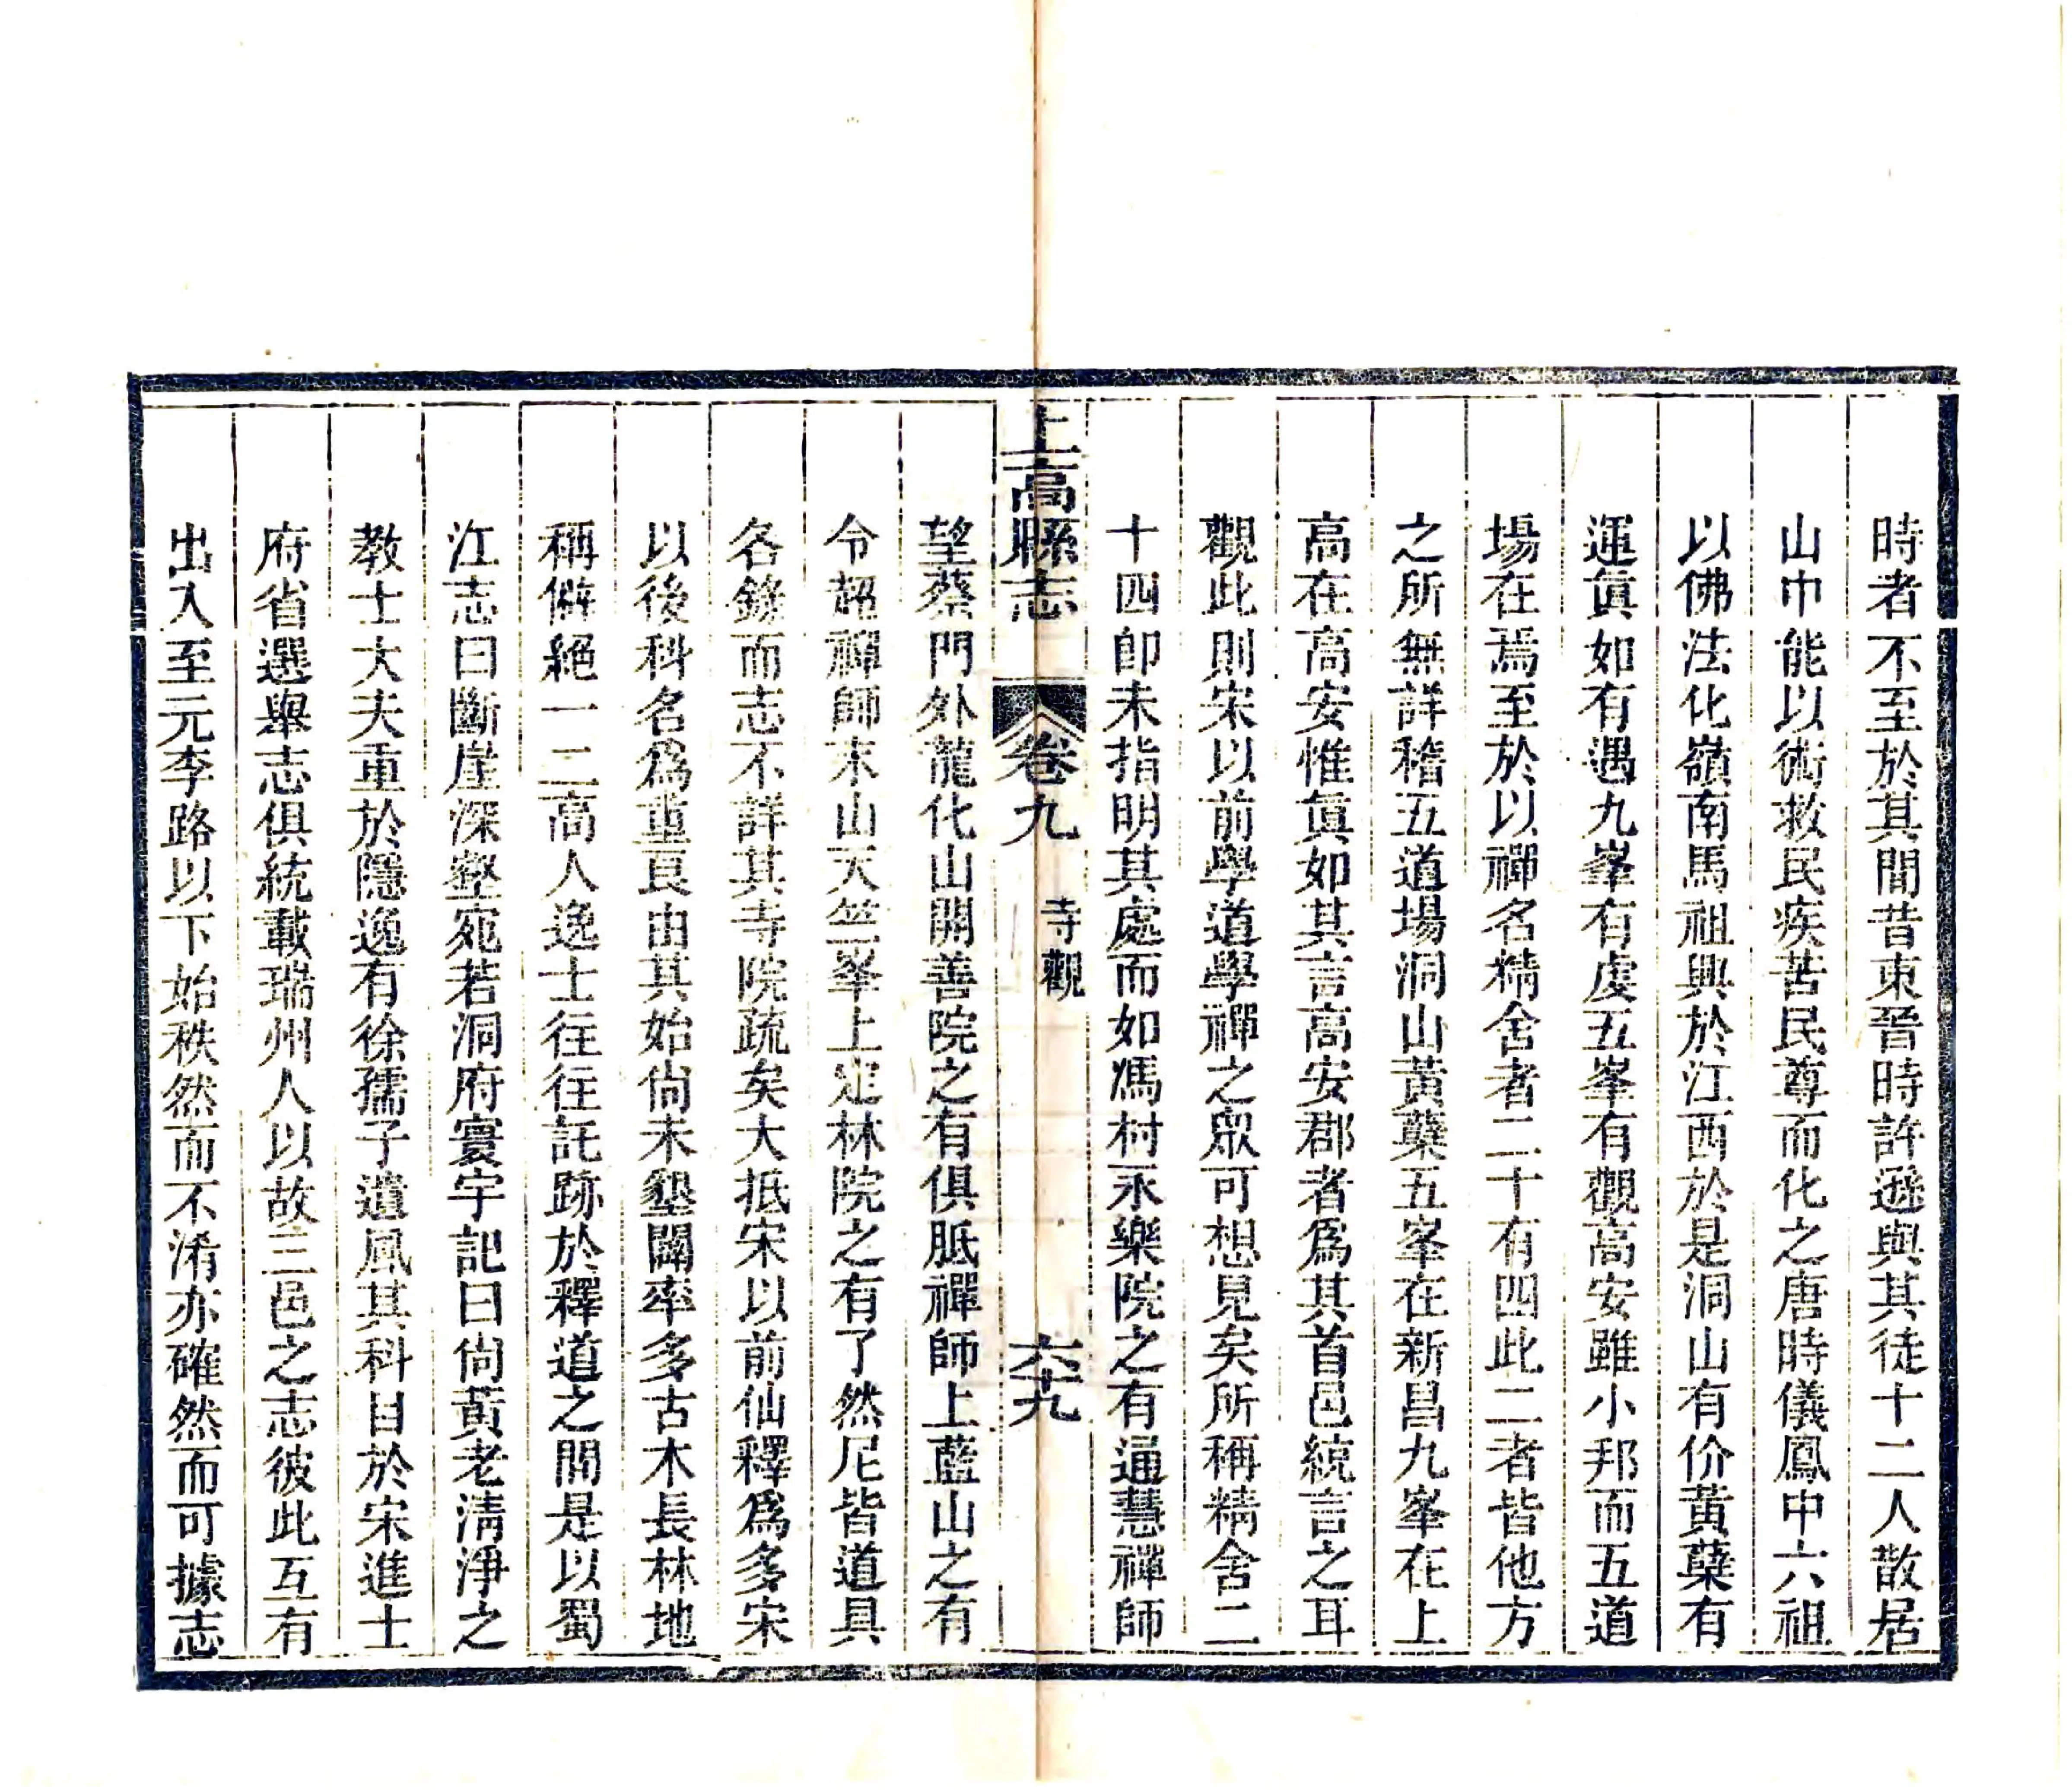 時者不至於其間昔東晉時許遜與其徒十二人散居
山中能以術救民疾苦民尊而化之唐時儀鳳中六祖
以佛法化嶺南馬祖興於江西於是洞山有价黃蘗有
運眞如有遇九峯有虔五峯有觀高安雖小邦而五道
場在焉至於以禪名精舍者二十有四此二者皆他方
之所無詳稽五道場洞山黃蘗五峯在新昌九峯在上
高在高安惟眞如其言高安郡者爲其首邑統言之耳
觀此則宋以前學道學禪之眾可想見矣所稱精舍二
十四卽未指明其處而如馮村永樂院之有通慧禪師
上高縣志 卷九 寺觀 六十九
望蔡門外龍化山開善院之有俱胝禪師上藍山之有
令超禪師末山天竺峯上定林院之有了然尼皆道具
名錄而志不詳其寺院疏矣大抵宋以前仙釋爲多宋
以後科名爲重良由其始尙未墾闢率多古木長林地
稱僻絕一二高人逸士往往託跡於釋道之間是以蜀
江志曰斷崖深壑宛若洞府寰宇記曰尙黃老淸淨之
教士大夫重於隱逸有徐孺子遺風其科目於宋進士
府省選舉志俱統載瑞州人以故三邑之志彼此互有
出入至元李路以下始秩然而不淆亦確然而可據志